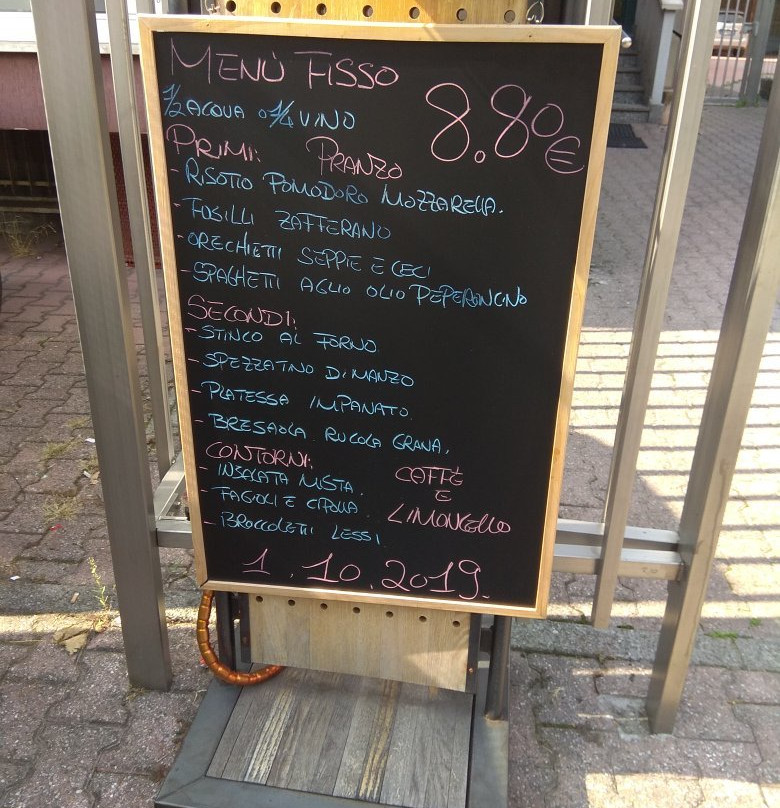 MENÙ FISSO
8.80€
1/2 ACQUA O 1/4 VINO
PRIMI: PRANZO
- RISOTTO POMODORO MOZZARELLA.
- FUSILLI ZAFFERANO
- ORECHIETTI SEPPIE E CECI
- SPAGHETTI AGLIO OLIO PEPERONCINO
SECONDI:
- STINCO AL FORNO
- SPEZZATINO DI MANZO
- PLATESSA IMPANATO
- BRESAOLA RUCOLA GRANA.
CONTORNI:
- INSALATA MISTA.
- FAGIOLI E CIPOLLA
- BROCCOLETTI LESSI
CAFFÈ
E
LIMONCELLO
1.10.2019.